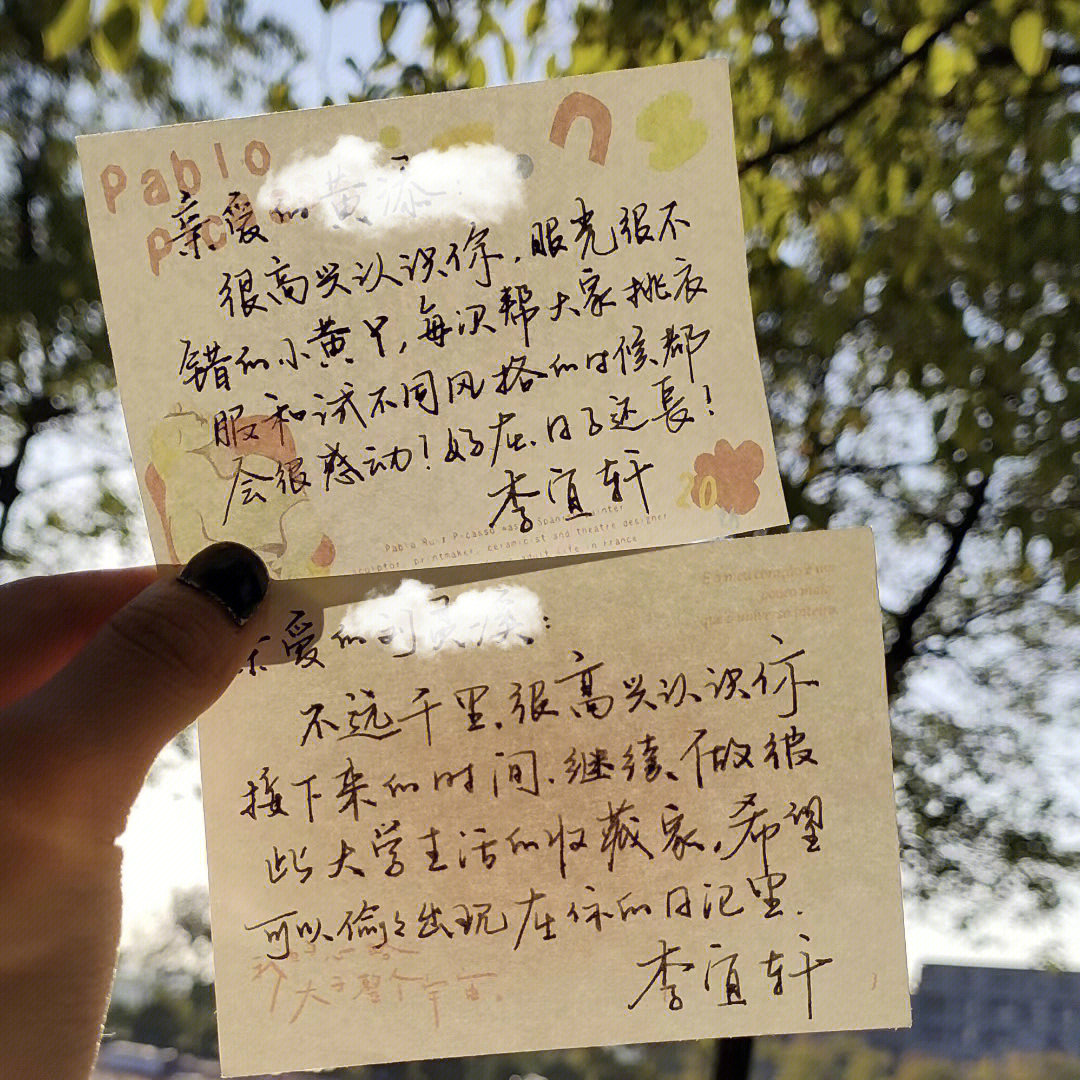 Pablo
亲爱的黄添
很高兴认识你,眼光很不
错的小黄丫,每次帮大家挑衣
服和试不同风格的时候都
会很感动!好在、日子还長!
李宜轩
20
Pablo Ruiz Picasso was a Spanish painter
sculptor, printmaker, ceramicist and theatre designer
adult life in France
亲爱的刘
不远千里、很高兴认识你
接下来的时间、继续、做彼
此大学生活的收藏家,希望
可以偷々出现在你的日记里.
李宜轩
大于整个宇宙.